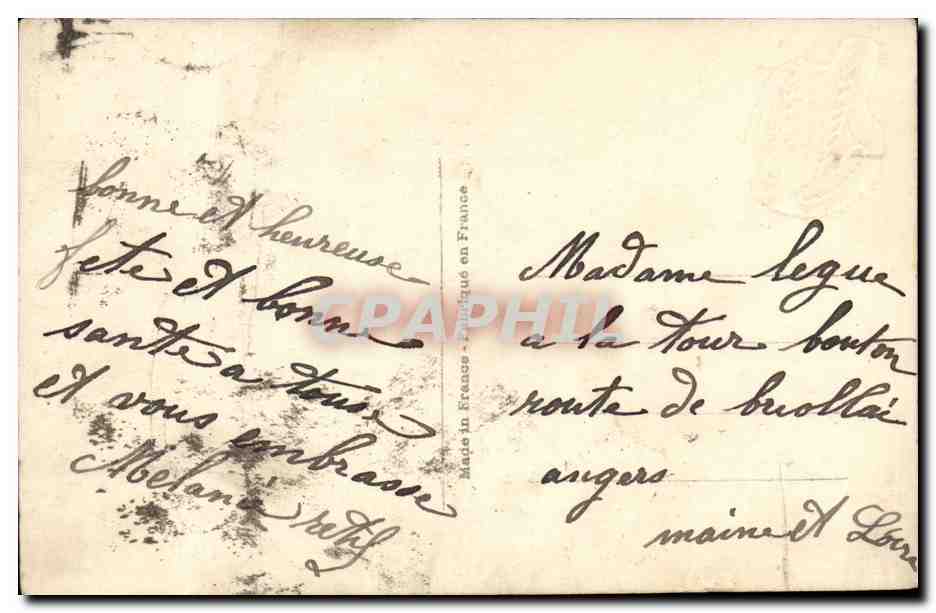 bonne et heureuse
fete et bonne
santé a tous
et vous embrasse
Melani retif
Made in France - Fabriqué en France
Madame legue
a la tour bouton
route de briollai
angers
maine et Loire
CPARPHIL